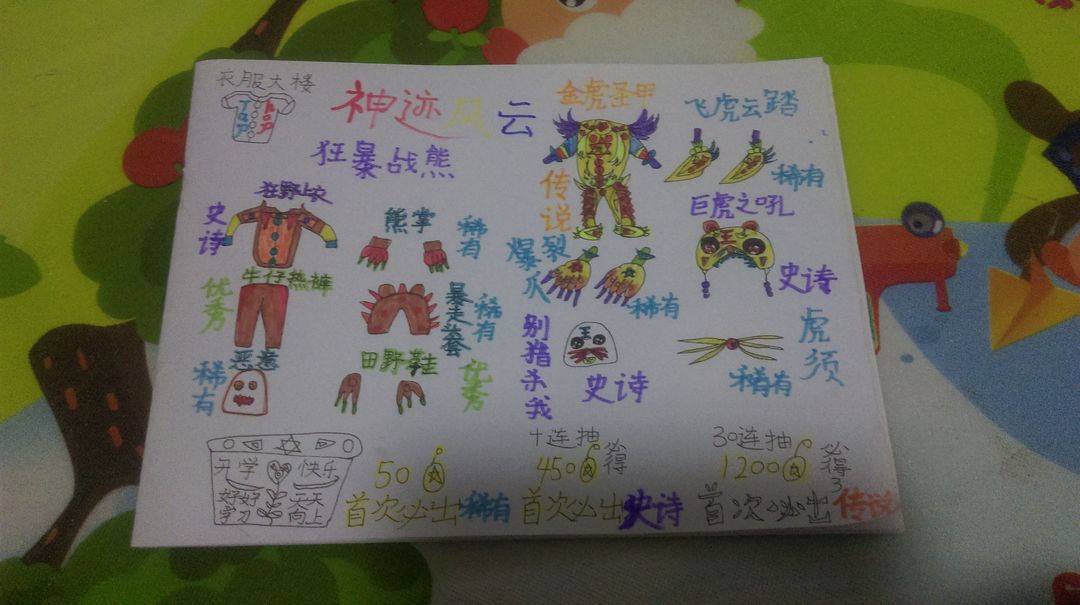 衣服大楼
TOP
TOP
神迹风云
狂暴战熊
狂野上衣
史诗
熊掌
稀有
牛仔热裤
优秀
暴走套
稀有
恶意
稀有
田野鞋
优秀
金虎圣甲
传说
飞虎云踏
稀有
巨虎之吼
史诗
爆裂爪
稀有
别猎杀我
史诗
虎须
稀有
开学快乐
好好学习
天天向上
50
首次必出稀有
十连抽
450
必得
首次必出史诗
30连抽
1200
必得3
首次必出传说